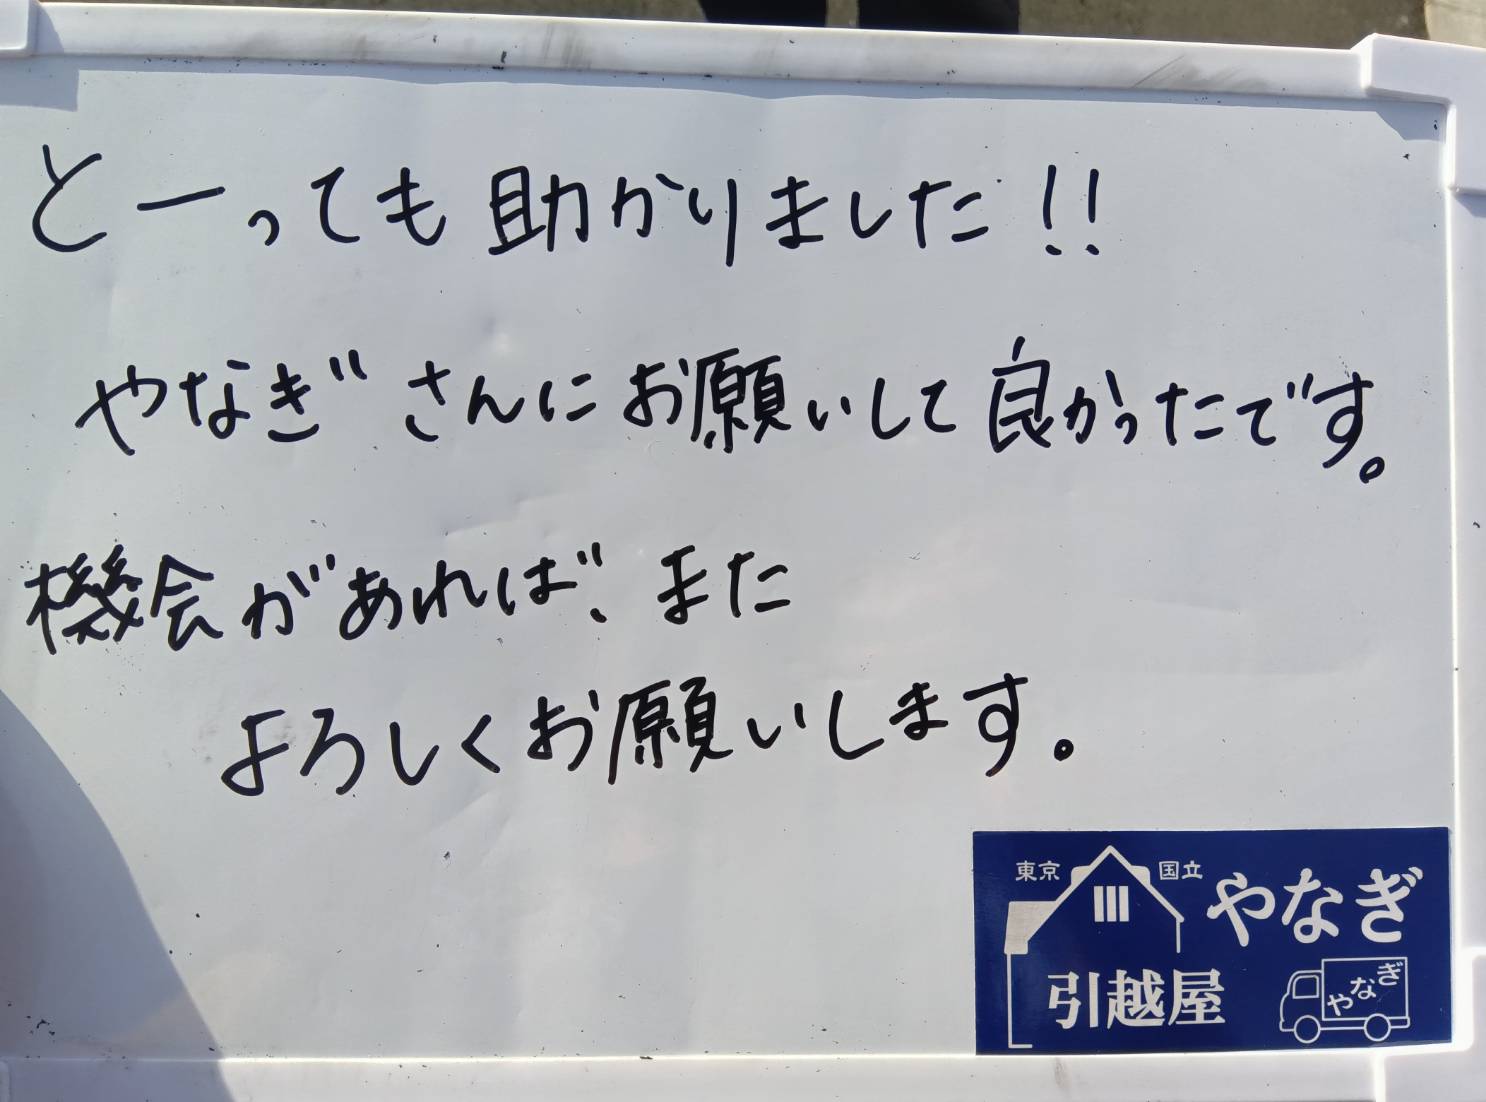 とーっても助かりました!!
やなぎさんにお願いして良かったです。
機会があれば、また
よろしくお願いします。
東京 国立
やなぎ
引越屋
やなぎ